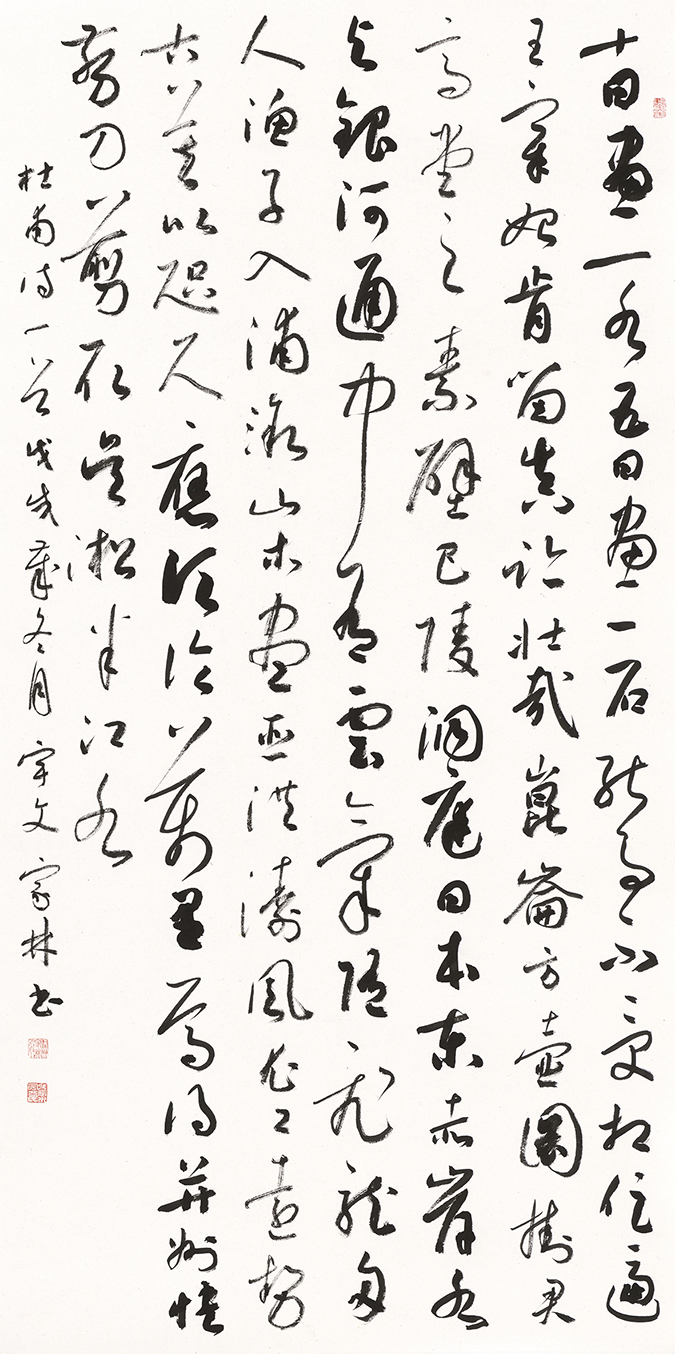 十日畫一水五日畫一石能事不受相促逼
王宰始肯留真跡壯哉崑崙方壺圖掛君
高堂之素壁巴陵洞庭日本東赤岸水
與銀河通中有雲氣隨飛龍舟
人漁子入浦漵山木盡亞洪濤風尤工遠勢
古莫比咫尺應須論萬里焉得并州快
剪刀剪取吳淞半江水
杜甫詩一首戊戌歲冬月宇文家林書